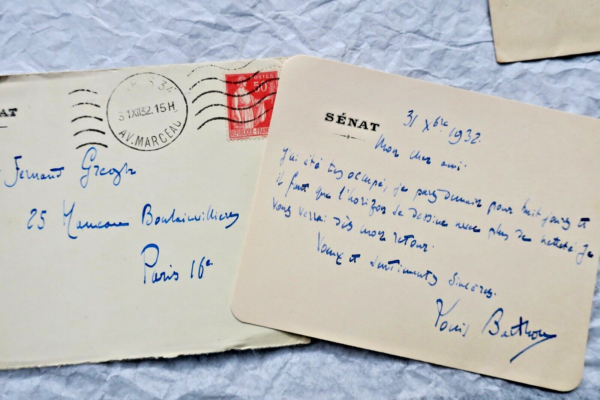 AT
31 XII 32. 15H
AV. MARCEAU
POSTES
50c
Fernand Gregh
25 Hameau Boulainvilliers
Paris 16e
SÉNAT
31 Xbre 1932.
Mon cher ami.
J'ai été très occupé, je pars demain pour huit jours et
il faut que l'horizon se dessine avec plus de netteté. Je
vous verrai dès mon retour.
Voeux et sentiments sincères.
Louis Barthou